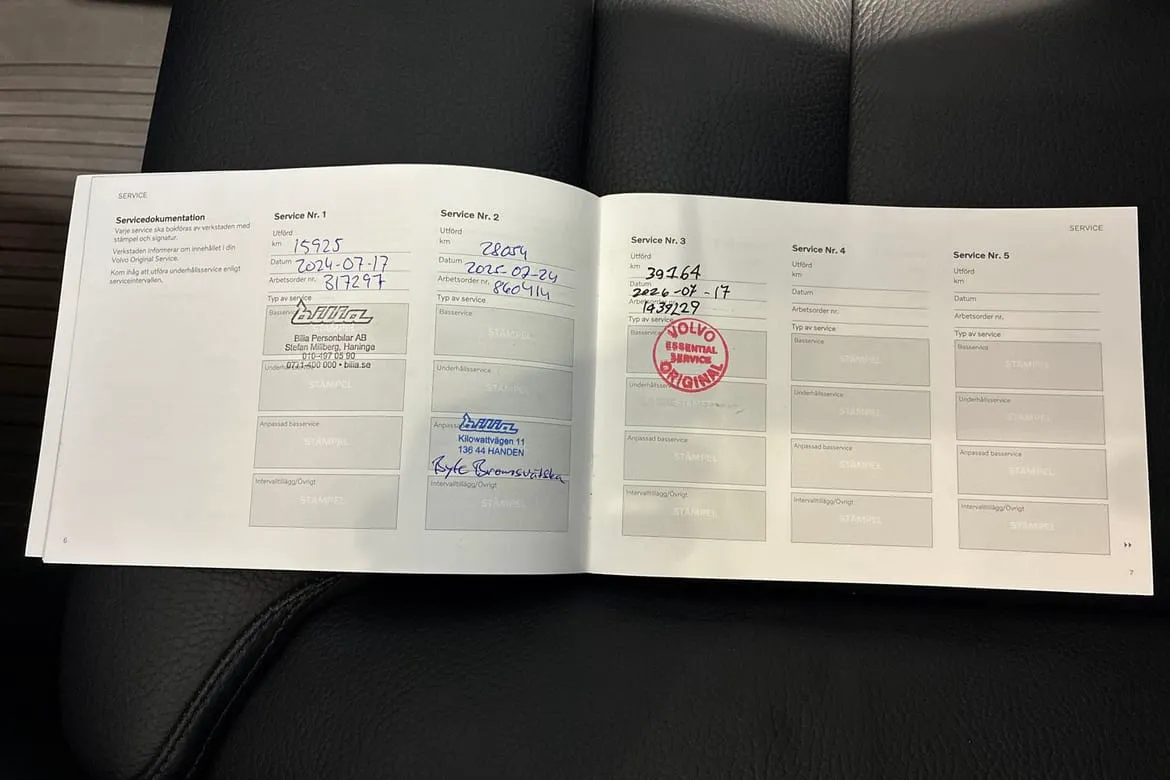 SERVICE
Servicedokumentation
Varje service ska bokföras av verkstaden med
stämpel och signatur.
Verkstaden informerar om innehållet i din
Volvo Original Service.
Kom ihåg att utföra underhållsservice enligt
serviceintervallen.
6
Service Nr. 1
Utförd
km 15925
Datum 2024-07-17
Arbetsorder nr. 817297
Typ av service
Basservice
bilia
Bilia Personbilar AB
Stefan Millberg, Haninge
010-497 05 90
0771-400 000 • bilia.se
Underhållsservice
STÄMPEL
Anpassad basservice
STÄMPEL
Intervalltillägg/Övrigt
STÄMPEL
Service Nr. 2
Utförd
km 28054
Datum 2025-07-24
Arbetsorder nr. 860414
Typ av service
Basservice
STÄMPEL
Underhållsservice
STÄMPEL
bilia
Kilowattvägen 11
136 44 HANDEN
Byte Bromsvätska
Intervalltillägg/Övrigt
STÄMPEL
SERVICE
Service Nr. 3
Utförd
km 39164
Datum 2026-07-17
Typ av service
Basservice
VOLVO
ESSENTIAL
SERVICE
ORIGINAL
Underhållsservice
STÄMPEL
Anpassad basservice
STÄMPEL
Intervalltillägg/Övrigt
STÄMPEL
Service Nr. 4
Utförd
km
Datum
Arbetsorder nr.
Typ av service
Basservice
STÄMPEL
Underhållsservice
STÄMPEL
Anpassad basservice
STÄMPEL
Intervalltillägg/Övrigt
STÄMPEL
Service Nr. 5
Utförd
km
Datum
Arbetsorder nr.
Typ av service
Basservice
STÄMPEL
Underhållsservice
STÄMPEL
Anpassad basservice
STÄMPEL
Intervalltillägg/Övrigt
STÄMPEL
7